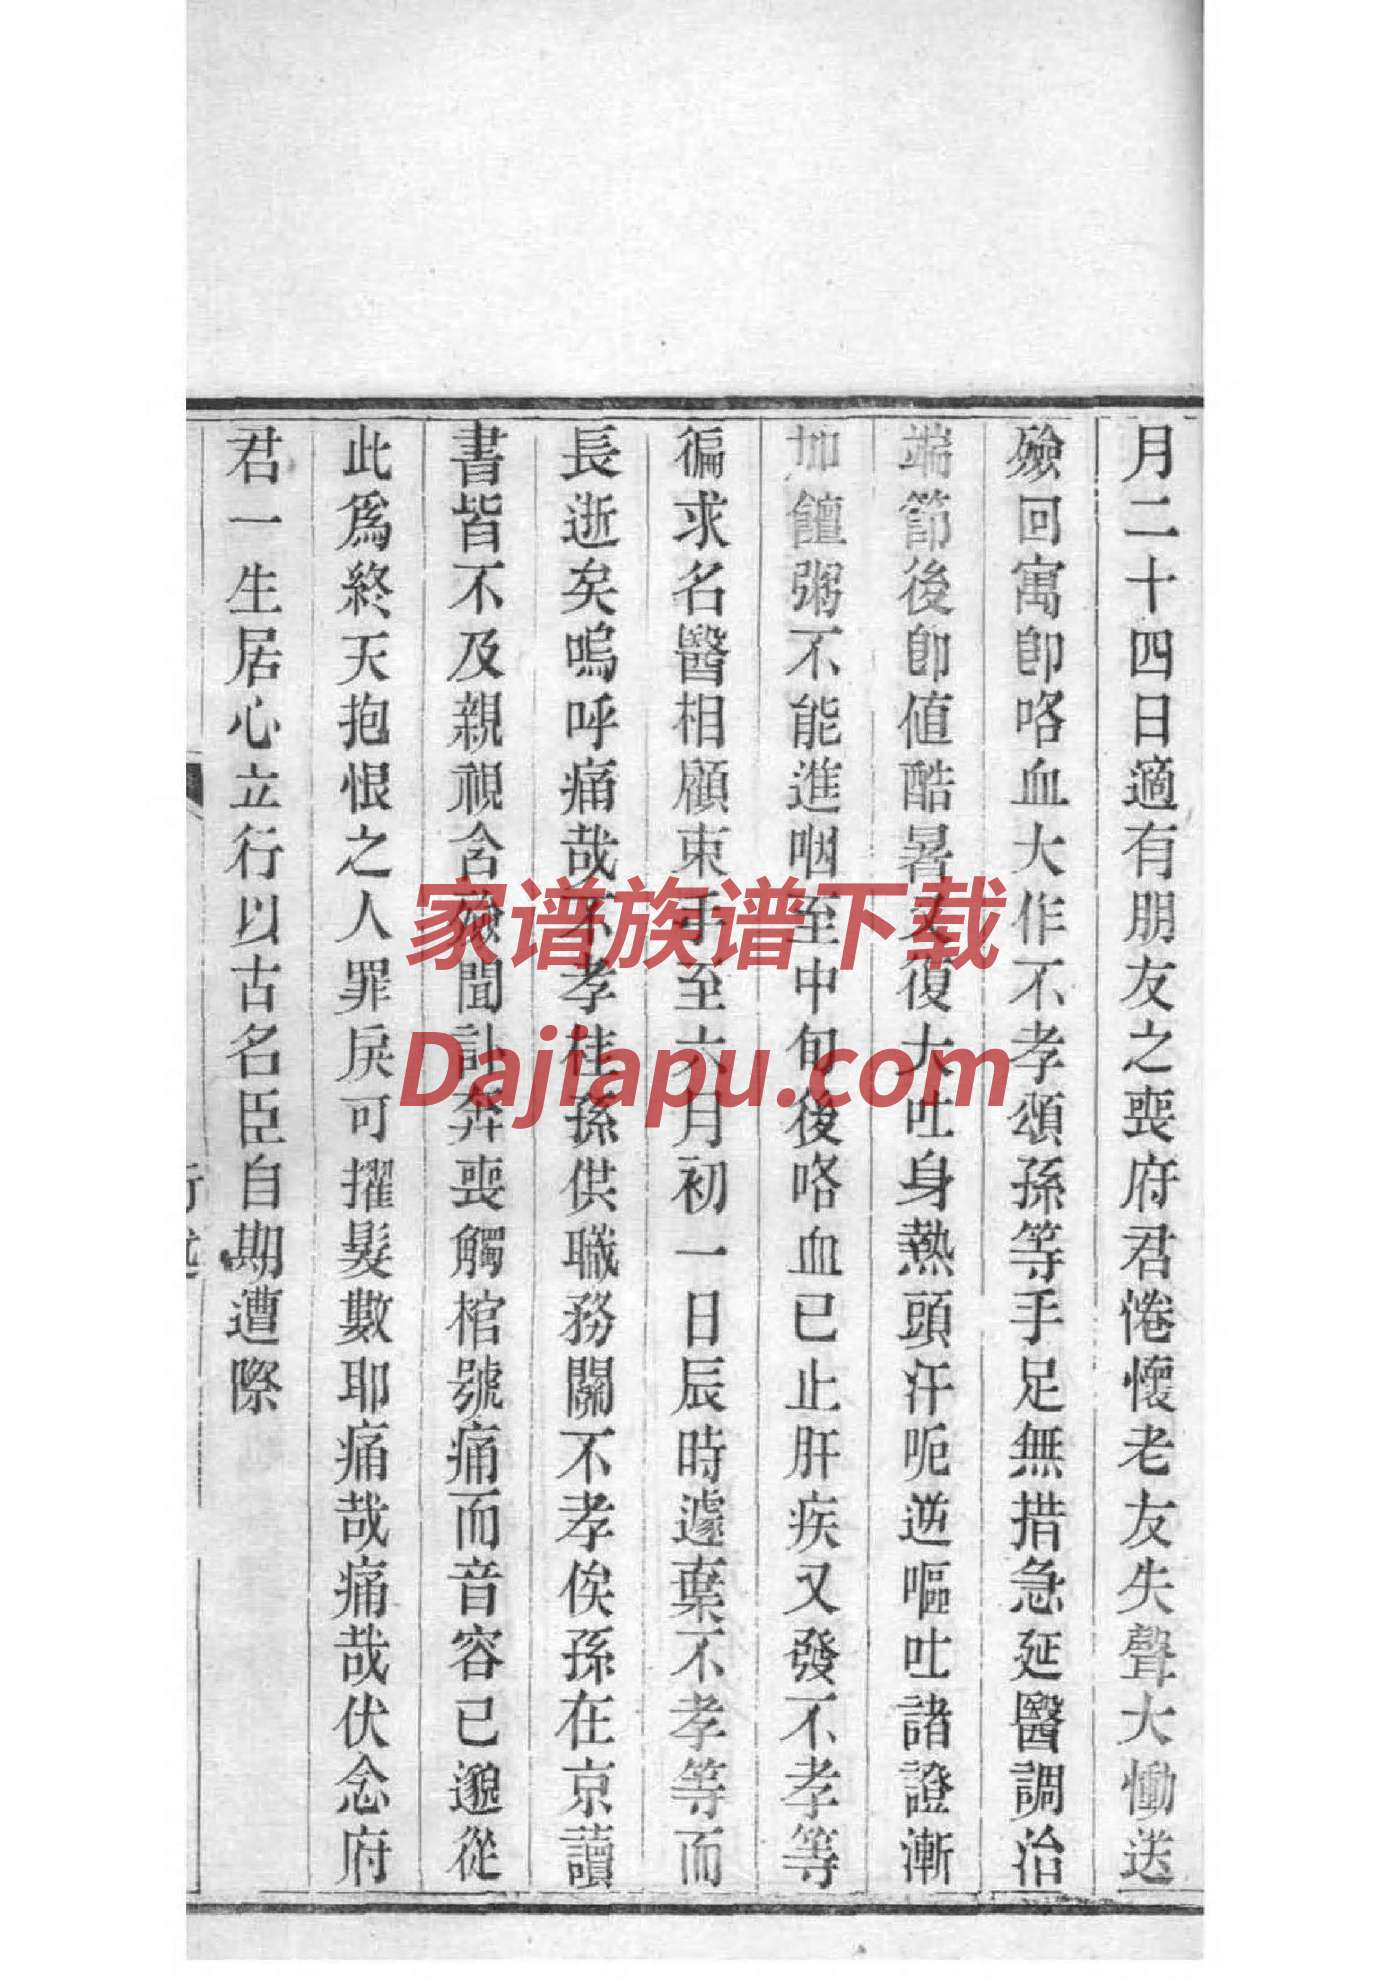 月二十四日適有朋友之喪府君惓懷老友失聲大慟送
殮回寓卽咯血大作不孝頌孫等手足無措急延醫調治
端節後卽值酷暑又復大吐身熱頭汗呃逆嘔吐諸證漸
加饘粥不能進咽至中旬後咯血已止肝疾又發不孝等
徧求名醫相顧束手至六月初一日辰時遽棄不孝等而
長逝矣嗚呼痛哉不孝桂孫供職務關不孝俟孫在京讀
書皆不及親視含殮聞訃奔喪觸棺號痛而音容已邈從
此爲終天抱恨之人罪戾可擢髮數耶痛哉痛哉伏念府
君一生居心立行以古名臣自期遭際
行述
家谱族谱下载
Dajiapu.com